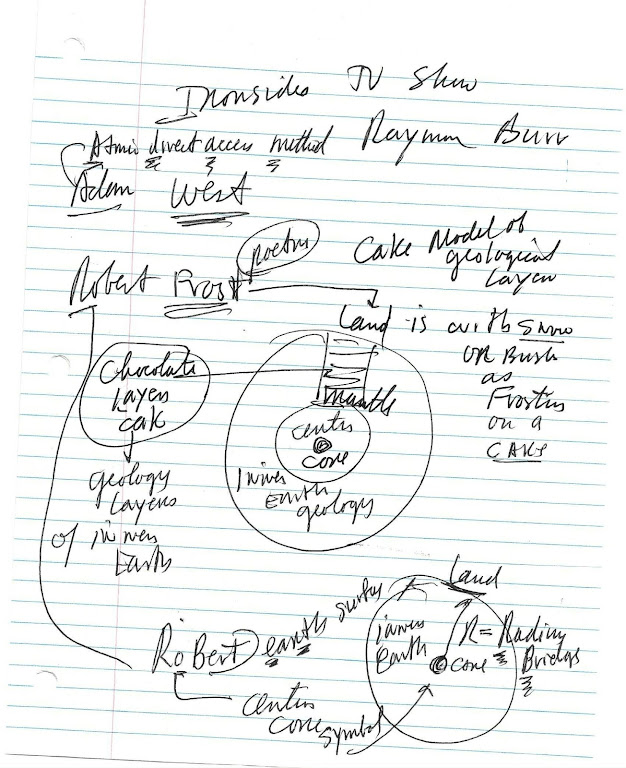 Ironsides TV Show
Atomic direct access method Raymon Burr
Adam West
poetry
Cake Model of
geological
Layer
Robert Frost
Land is with Snow
or Bush
as
Frosting
on a
CAKE
Chocolate
Layer
cak
mantle
center
core
inner
Earth
geology
geology
Layers
of inner
Earth
Land
RoBert earth surface
inner
Earth
R = Radius
core Bridge
center
core symbol